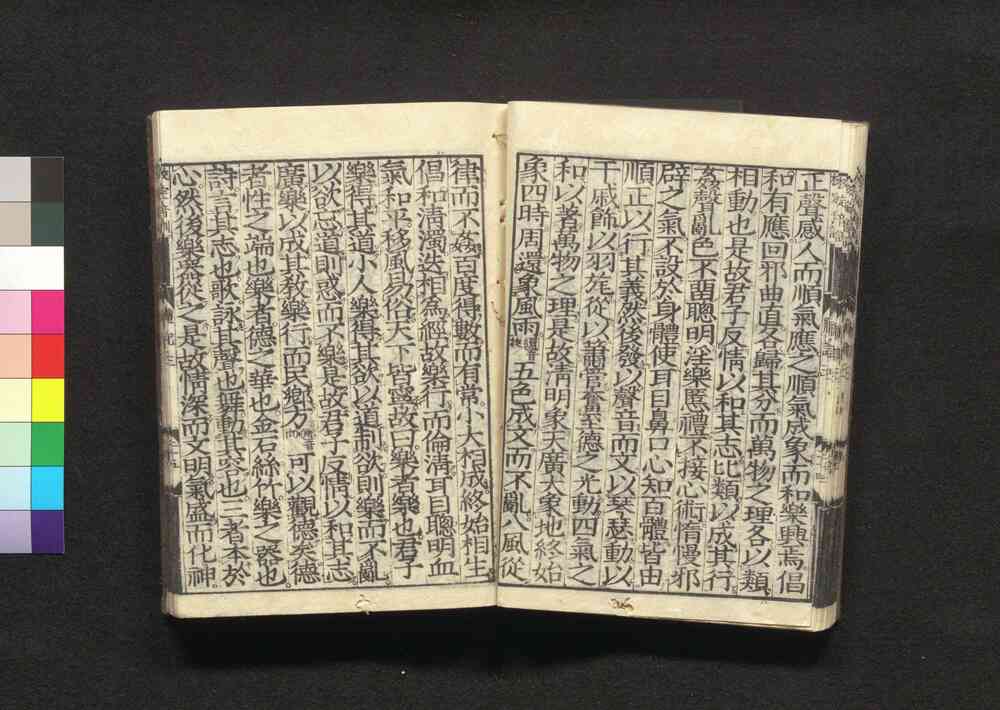 正聲感人而順氣應之順氣成象而和樂興焉倡
和有應回邪曲直各歸其分而萬物之理各以類
相動也是故君子反情以和其志比類以成其行
姦聲亂色不留聰明淫樂慝禮不接心術惰慢邪
辟之氣不設於身體使耳目鼻口心知百體皆由
順正以行其義然後發以聲音而文以琴瑟動以
干戚飾以羽旄從以簫管奮至德之光動四氣之
和以著萬物之理是故清明象天廣大象地終始
象四時周還象風雨五色成文而不亂八風從
律而不姦百度得數而有常小大相成終始相生
倡和清濁迭相為經故樂行而倫淸耳目聰明血
氣和平移風易俗天下皆寧故曰樂者樂也君子
樂得其道小人樂得其欲以道制欲則樂而不亂
以欲忘道則惑而不樂是故君子反情以和其志
廣樂以成其敎樂行而民鄉方可以觀德矣德
者性之端也樂者德之華也金石絲竹樂之器也
詩言其志也歌詠其聲也舞動其容也三者本於
心然後樂器從之是故情深而文明氣盛而化神